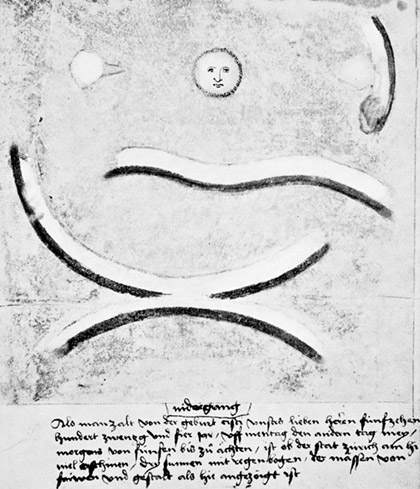 nidergang
Als man zalt von der geburt cristi unsers lieben herren fünfzehen
hundert zwenzg und fier jar / uff mentag den andern tag mey /
morgens von fünfen bis zů achten / ist ob der stat zürich am hi
mel erschinen / dry sunnen mit regenbogen / der massen von
farwen und gestalt als hie angezöigt ist